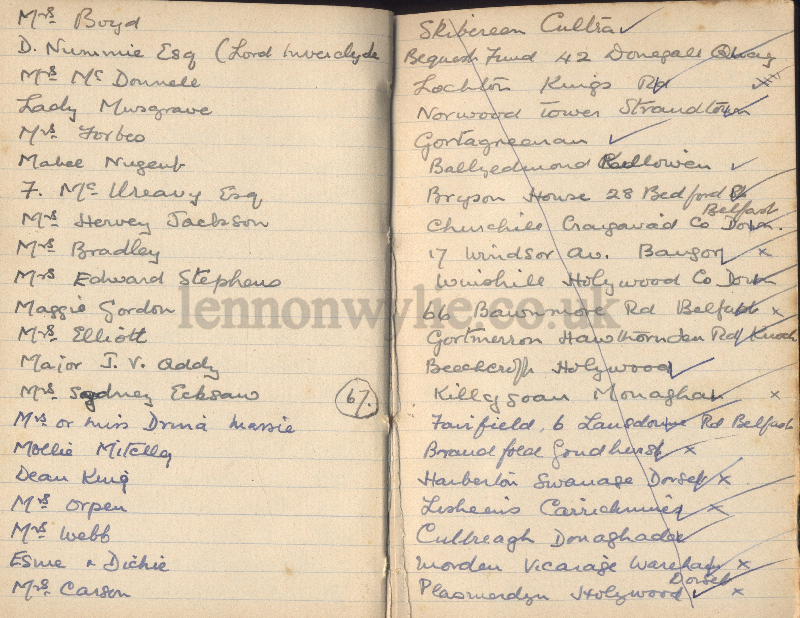 Mrs Boyd
D. Nimmie Esq (Lord Inverclyde
Mrs McDonnell
Lady Musgrave
Mrs Forbes
Mabel Nugent
F. McCreavy Esq
Mrs Hervey Jackson
Mrs Bradley
Mrs Edward Stephens
Maggie Gordon
Mrs Elliott
Major J. V. Oddy
Mrs Sydney
67.
Mrs or Miss Drina Massie
Mollie
Dean King
Mrs Orpen
Mrs Webb
Esme & Dickie
Mrs Carson
Skibereen Cultra
Bequest Fund 42 Donegall Quay
Lochton Kings Rd
Norwood Tower Strandtown
Gortagreenan
Ballyedmond
Bryson House 28 Bedford St
Belfast
Churchill Craigavad Co Down.
17 Windsor Av. Bangor x
Windhill Holywood Co Down
66 Bawnmore Rd Belfast x
Gortmerron Hawthornden Rd Knock
Beechcroft Holywood
Killygoan Monaghan x
Fairfield, 6 Lansdowne Rd Belfast
Brandfold Goudhurst x
Harberton Swanage Dorset x
Lisheens Carrickmines x
Cultreagh Donaghadee
Morden Vicarage Wareham x
Dorset
Plasmerdyn Holywood x
lennonwylie.co.uk